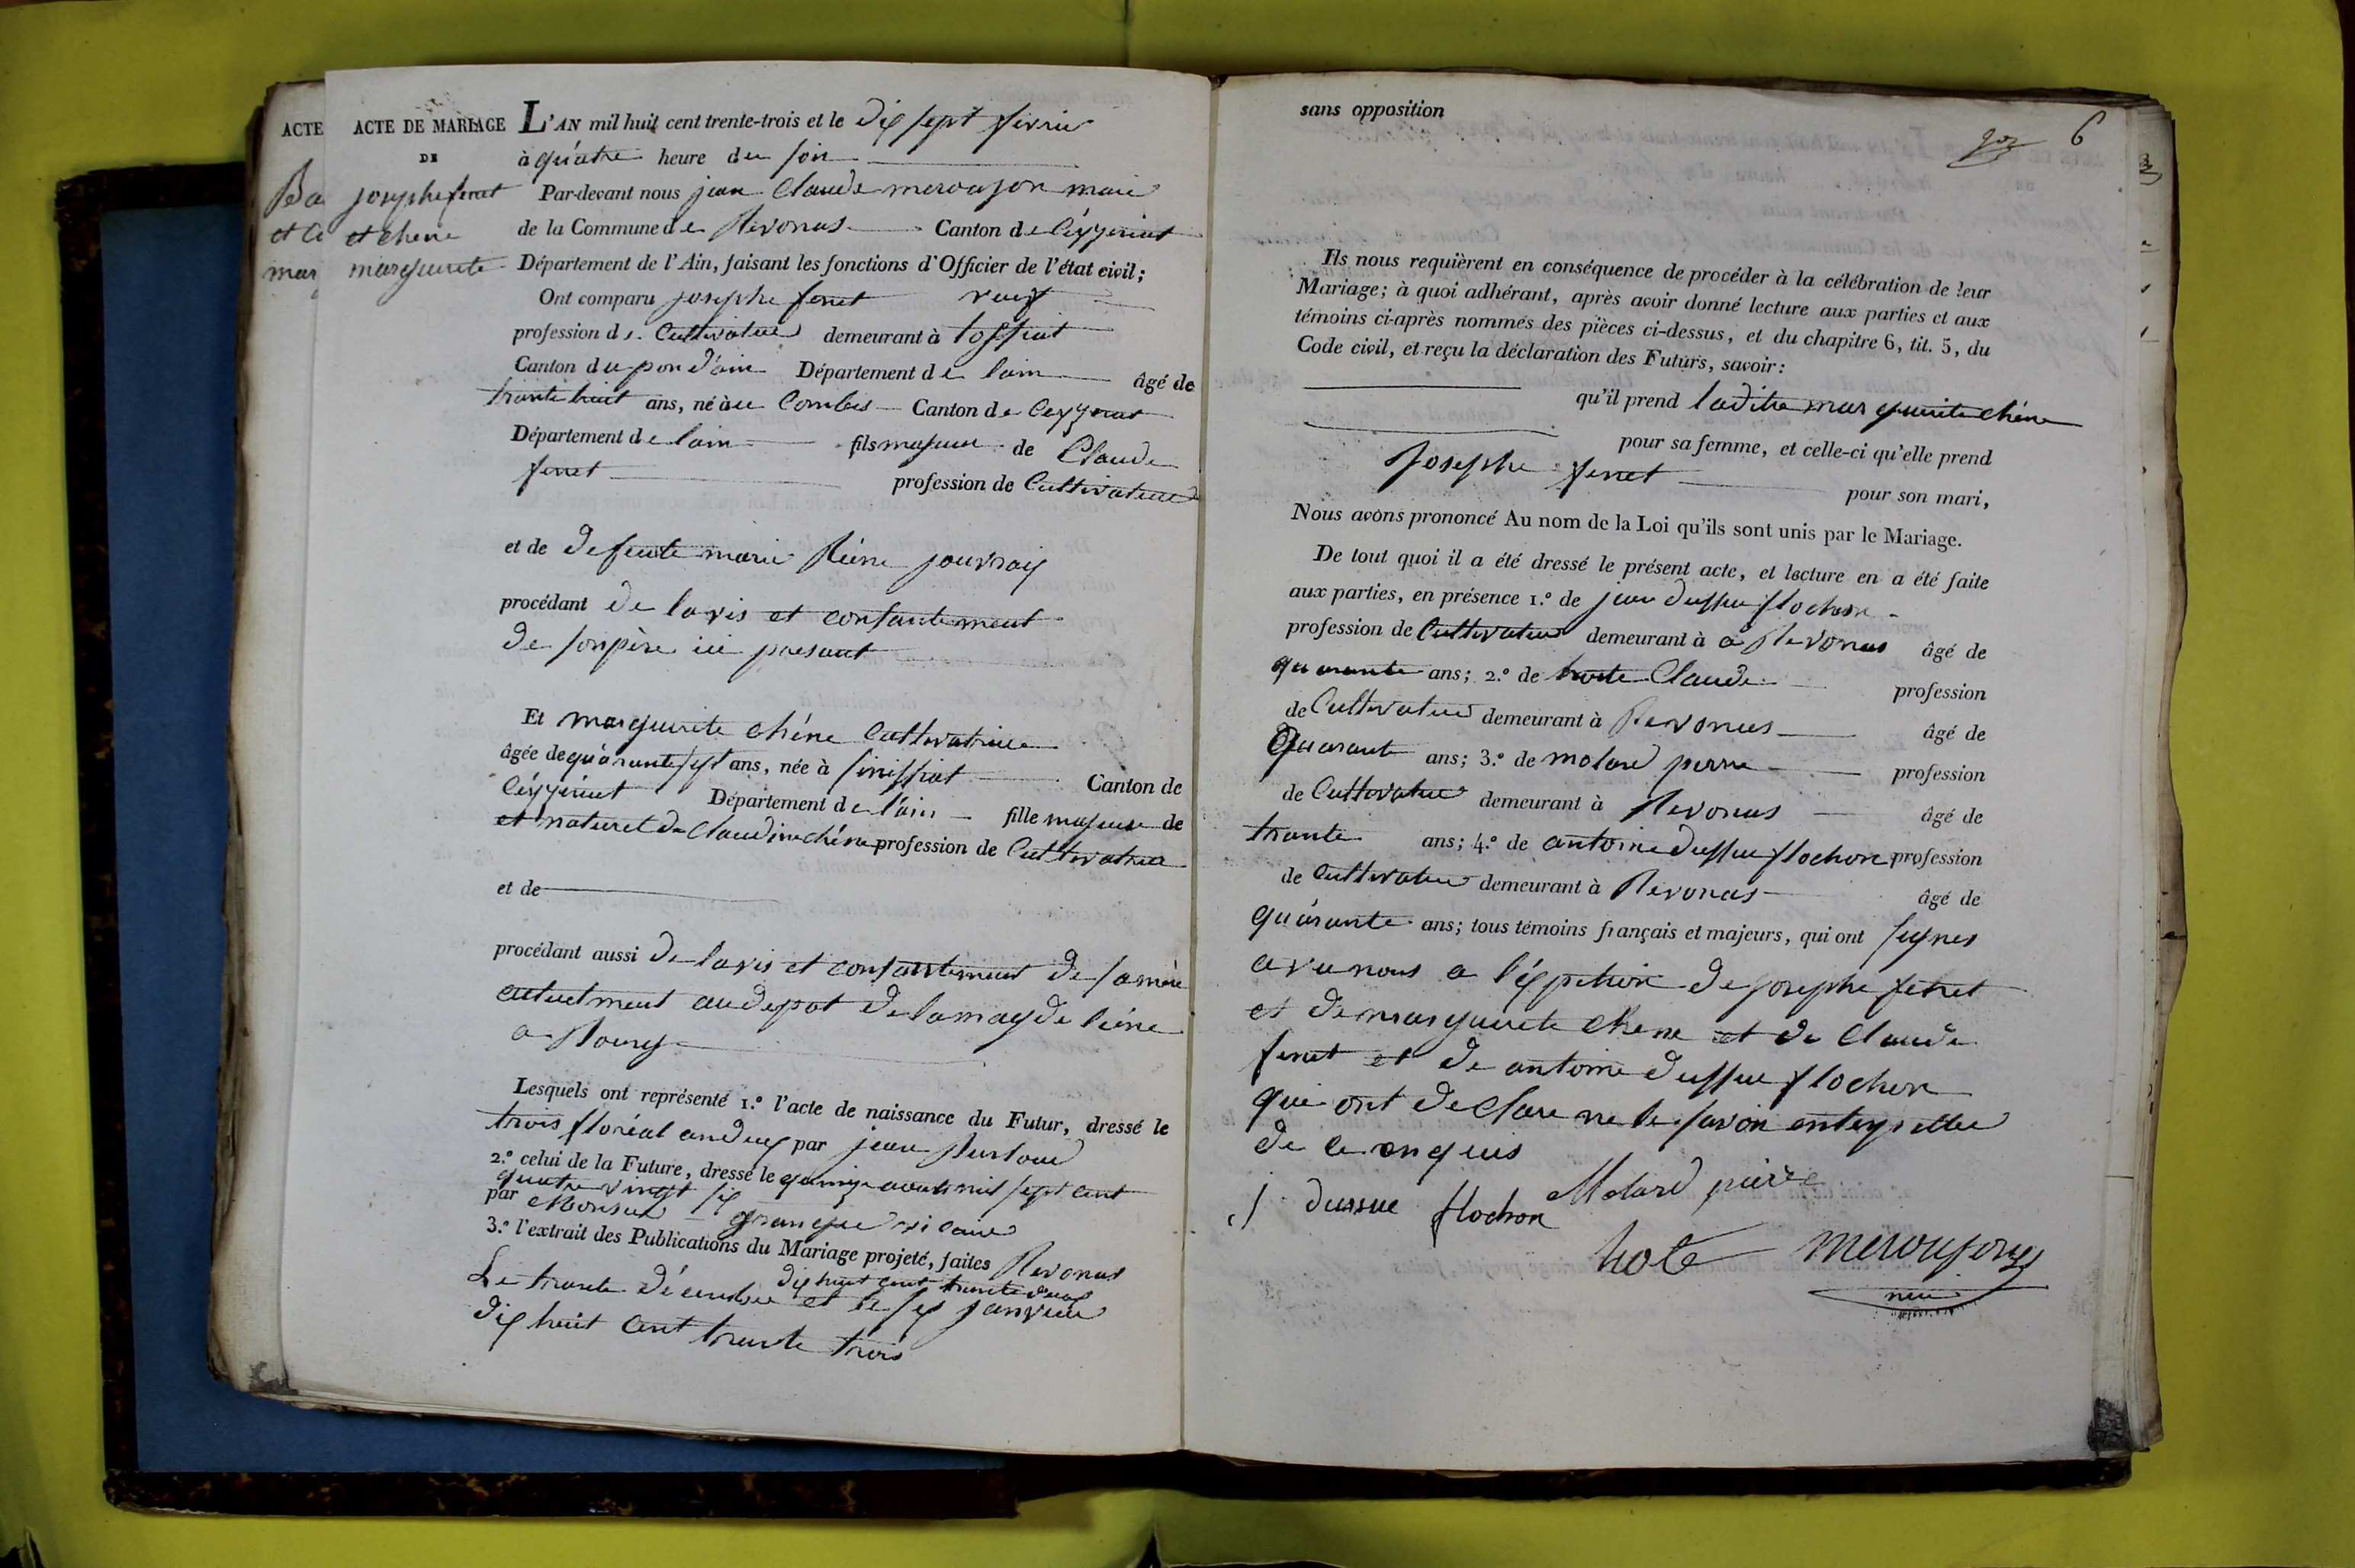 ACTE
Ba
et
mar
ACTE DE MARIAGE
DE
josephe ferret
et chene
marguerite
L'AN mil huit cent trente-trois et le dix sept fevrier
à quatre heure du soir
Par-devant nous jean Claude mercujon maire
de la Commune de Revonas Canton de Ceyzeriat
Département de l'Ain, faisant les fonctions d'Officier de l'état civil;
Ont comparu josephe ferret veuf
profession de Cultivateur demeurant à tossiat
Canton du pon d'ain Département de lain âgé de
trante huit ans, né à Canton de Ceyzeriat
Département de lain fils majeur de Claude
ferret profession de Cultivateur
et de defeute marie Reine
procédant de lavis et consantement
de son père ici presant
Et marguerite chéne Cultivatrice
âgée de quarante sept ans, née à Canton de
Ceyzeriat Département de l'ain fille majeure de
et naturel de Claudine chéne profession de Cultivatrice
et de
procédant aussi de lavis et consantement de sa mère
au depot de la magdeleine
a Bourg
Lesquels ont représenté 1.º l'acte de naissance du Futur, dressé le
trois floréal an deux par jean
2.º celui de la Future, dressé le mil sept cent
quatre vingt six
par Monsieur vicaire
3.º l'extrait des Publications du Mariage projeté, faites Revonas
dix huit cent trante deux
Le trante décembre et le six janvier
dix huit cent trante trois
sans opposition
6
Ils nous requièrent en conséquence de procéder à la célébration de leur
Mariage; à quoi adhérant, après avoir donné lecture aux parties et aux
témoins ci-après nommés des pièces ci-dessus, et du chapitre 6, tit. 5, du
Code civil, et reçu la déclaration des Futurs, savoir:
qu'il prend ladite marguerite chéne
pour sa femme, et celle-ci qu'elle prend
Josephe ferret pour son mari,
Nous avons prononcé Au nom de la Loi qu'ils sont unis par le Mariage.
De tout quoi il a été dressé le présent acte, et lecture en a été faite
aux parties, en présence 1.º de jean dussue flochon
profession de Cultivateur demeurant à a Revonas âgé de
quarante ans; 2.º de Claude profession
de Cultivateur demeurant à Revonas âgé de
Quarante ans; 3.º de molard pierre profession
de Cultivateur demeurant à Revonas âgé de
trante ans; 4.º de antoine dussue flochon profession
de Cultivateur demeurant à Revonas âgé de
quarante ans; tous témoins français et majeurs, qui ont signer
avu nous a de josephe ferret
et de marguerite chene et de Claude
ferret et de antoine dussue flochon
qui ont declare ne le savoir
de
J dussue flochon Molard pierre
mercujon